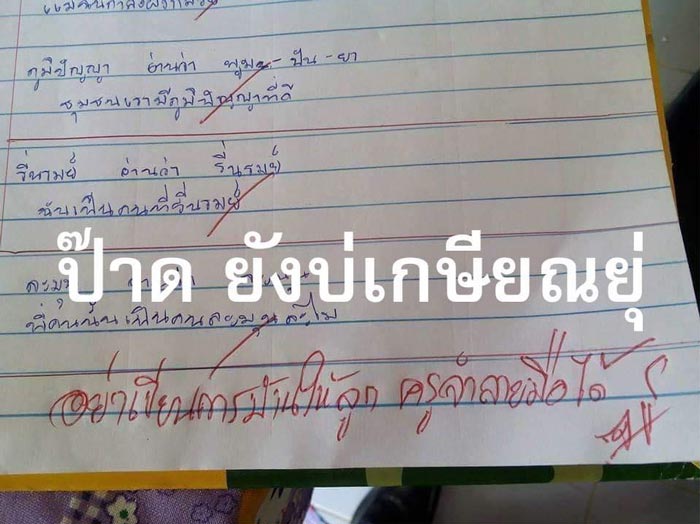 ภูมิปัญญา อ่านว่า พูม-ปัน-ยา
ชุมชนเรามีภูมิปัญญาที่ดี
รื่นรมย์ อ่านว่า รื่นรมย์
ฉันเป็นคนที่รื่นรมย์
ป๊าด ยังบ่เกษียณยุ่
ละมุน
พี่คนนั้นเป็นคนละมุนละไม
อย่าเขียนการบ้านให้ลูก ครูจำลายมือได้